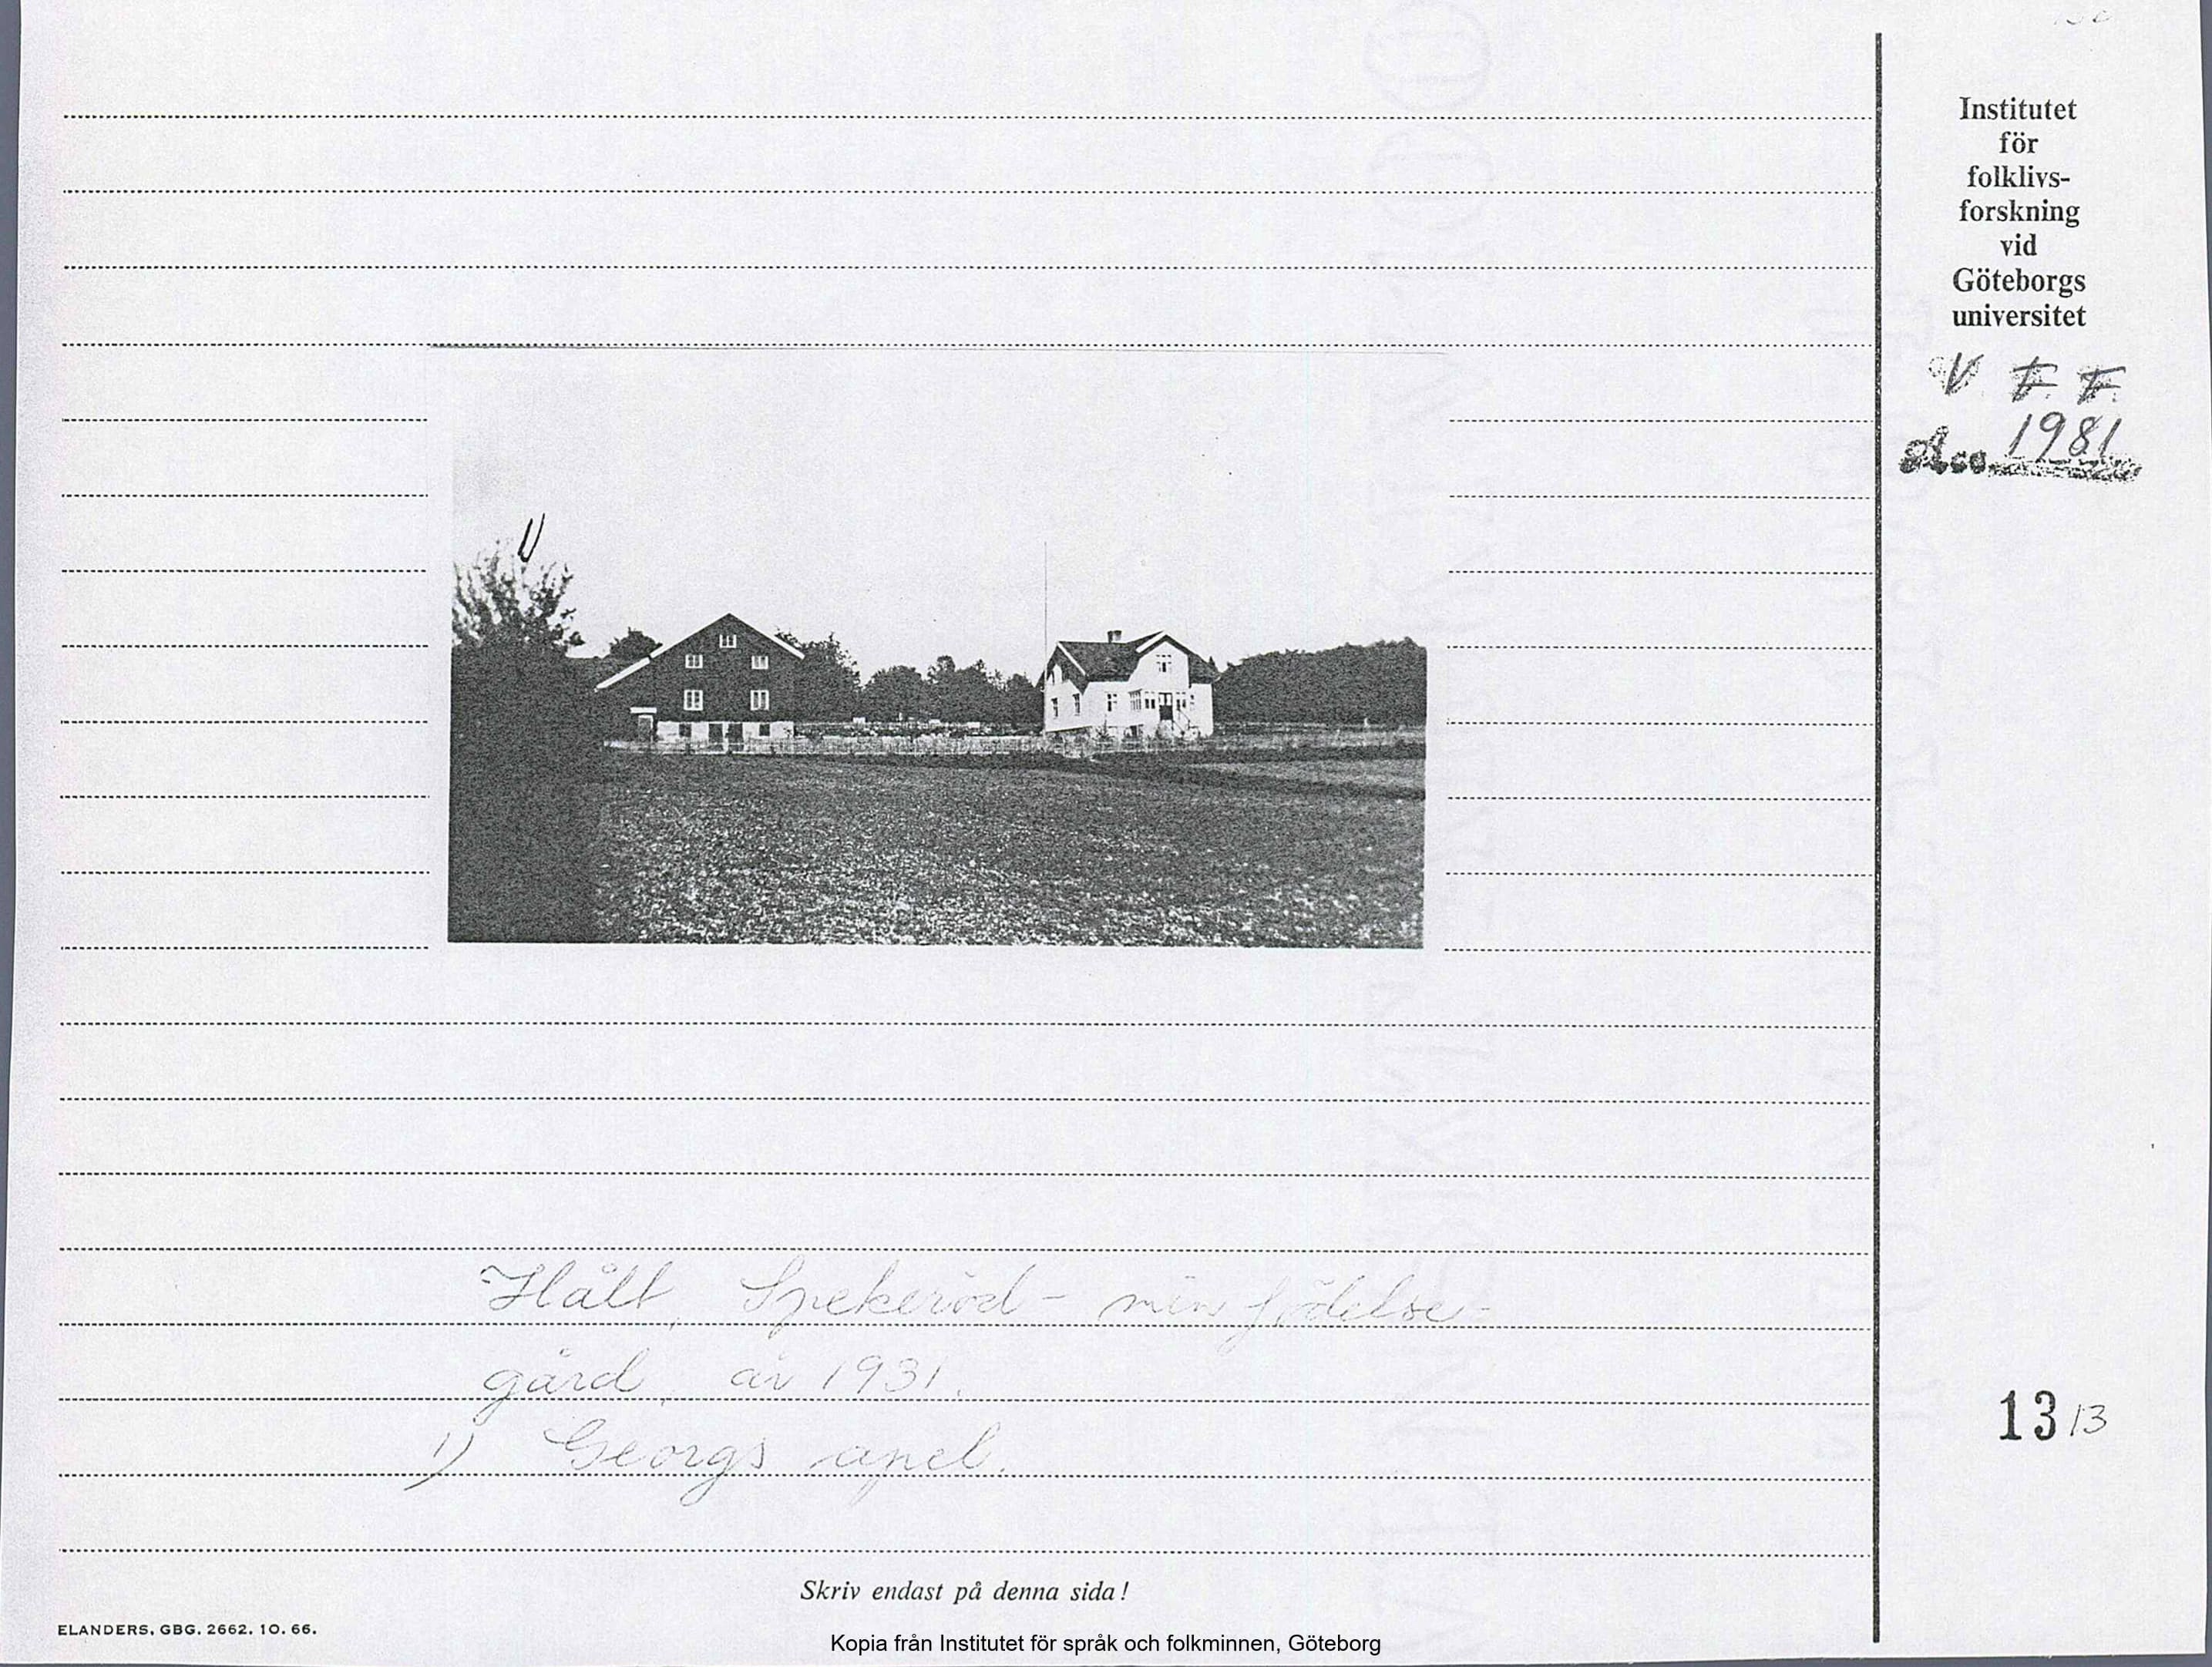 Institutet
för
folklivs-
forskning
vid
Göteborgs
universitet
V. F. F.
Acc. 1981
1)
Hält, Spekeröd - min födelse-
gård, år 1931.
1) Georgs apel.
13 13
Skriv endast på denna sida!
ELANDERS, GBG. 2662. 10. 66.
Kopia från Institutet för språk och folkminnen, Göteborg